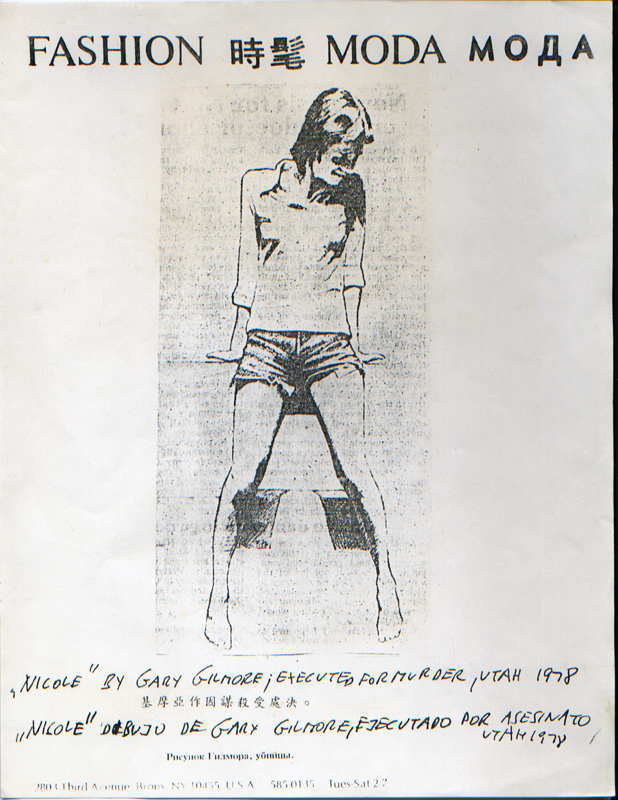 FASHION 時髦 MODA МОДА
„NICOLE" BY GARY GILMORE; EXECUTED FOR MURDER, UTAH 1978
基摩亞作因謀殺受處決。
„NICOLE" DEBUJO DE GARY GILMORE, EJECUTADO POR ASESINATO
UTAH 1978
Рисунок Гилмора, убийцы.
2803 Third Avenue, Bronx, NY 10455, U.S.A. 585-0135 Tues-Sat 2-7